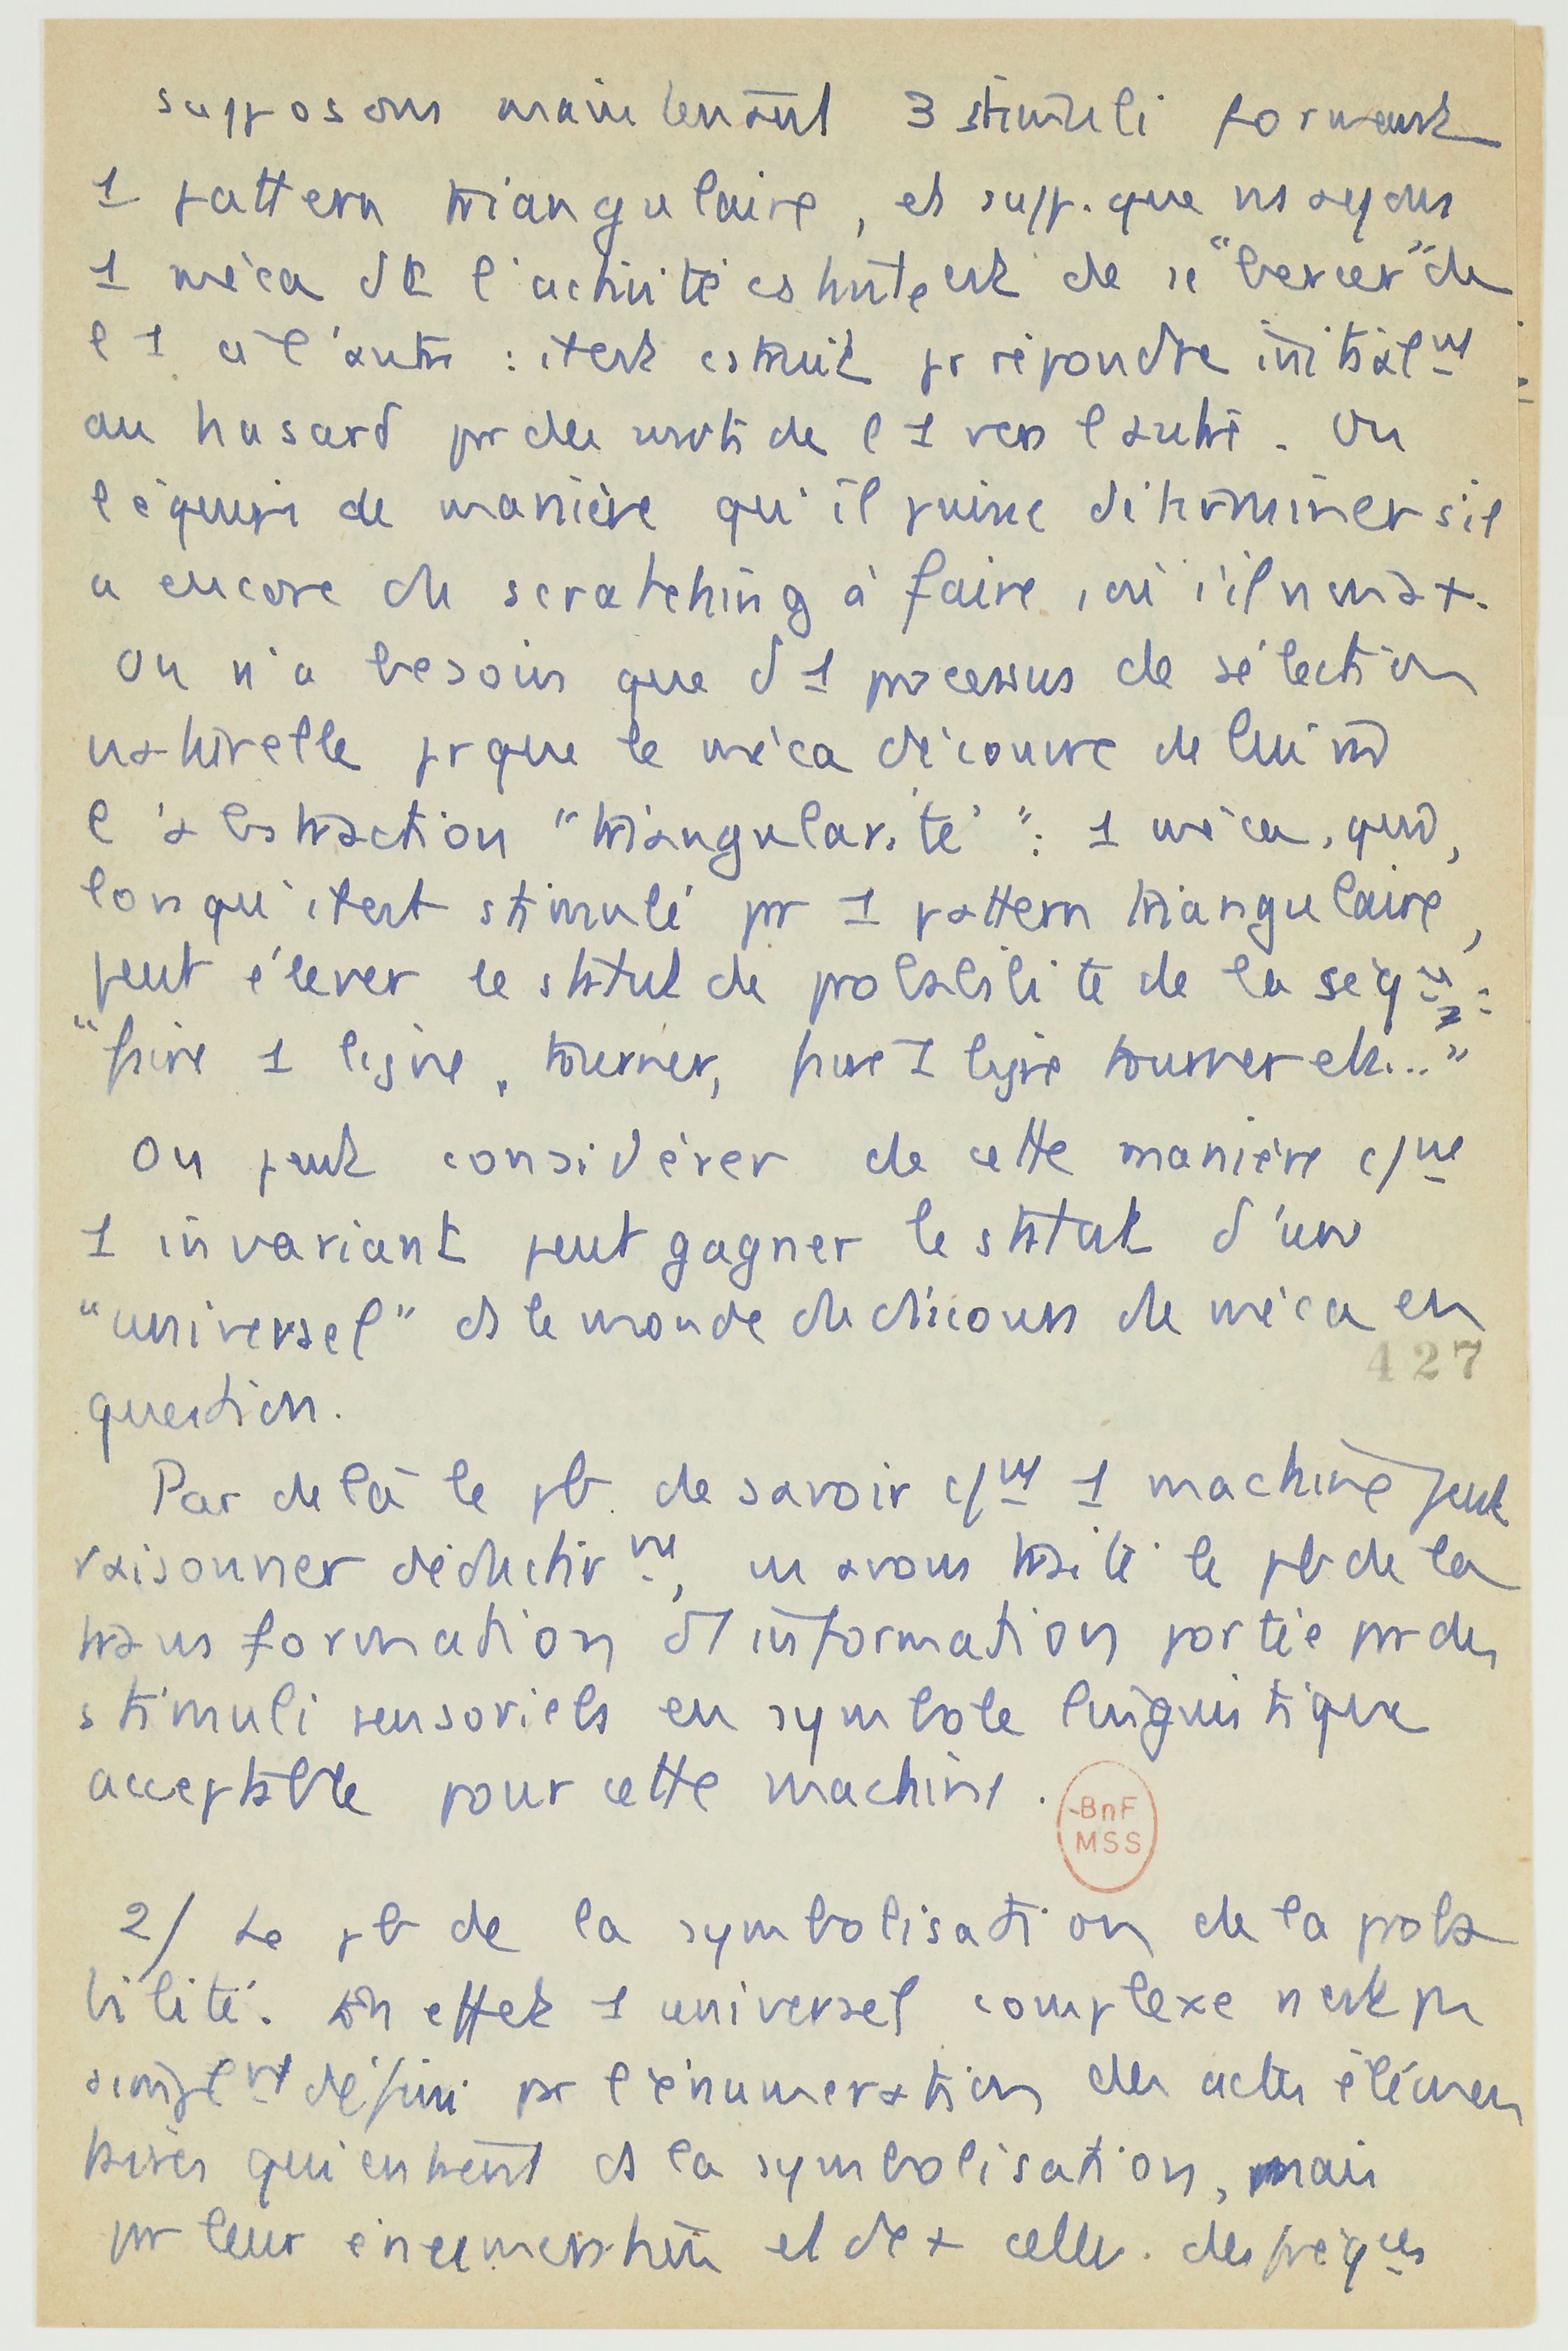 supposons maintenant 3 stimuli formant
1 pattern triangulaire, et supp. que ns ayons
1 méca dt l'activité est de se "bercer" de
l 1 à l'autre : il est cstruit pr répondre initialmt
au hasard par des mvts de l 1 vers l'autre. On
l'équipe de manière qu'il puisse déterminer s'il
a encore du scratching à faire, où s'il n en a +.
On n'a besoin que d 1 processus de sélection
naturelle pr que le méca découvre de lui m̄
l'abstraction "triangularité" : 1 méca, qui,
lorsqu'il est stimulé par 1 pattern triangulaire,
peut élever le statut de probabilité de la séqce :
"faire 1 ligne, tourner, faire 1 ligne tourner etc..."
On peut considérer de cette manière cmt
1 invariant peut gagner le statut d'un
"universel" ds le monde du discours de méca en
question.
427
Par delà le pb. de savoir cmt 1 machine peut
raisonner déductivmt, ns avons traité le pb de la
transformation d 1 information portée par des
stimuli sensoriels en symbole linguistique
acceptable pour cette machine.
BnF
MSS
2/ Le pb de la symbolisation de la proba
bilité. En effet 1 universel complexe n'est pas
simplmt défini par l'énumération des actes élémen
taires qui entrent ds la symbolisation, mais
par leur énumération et de + celle des fréqces